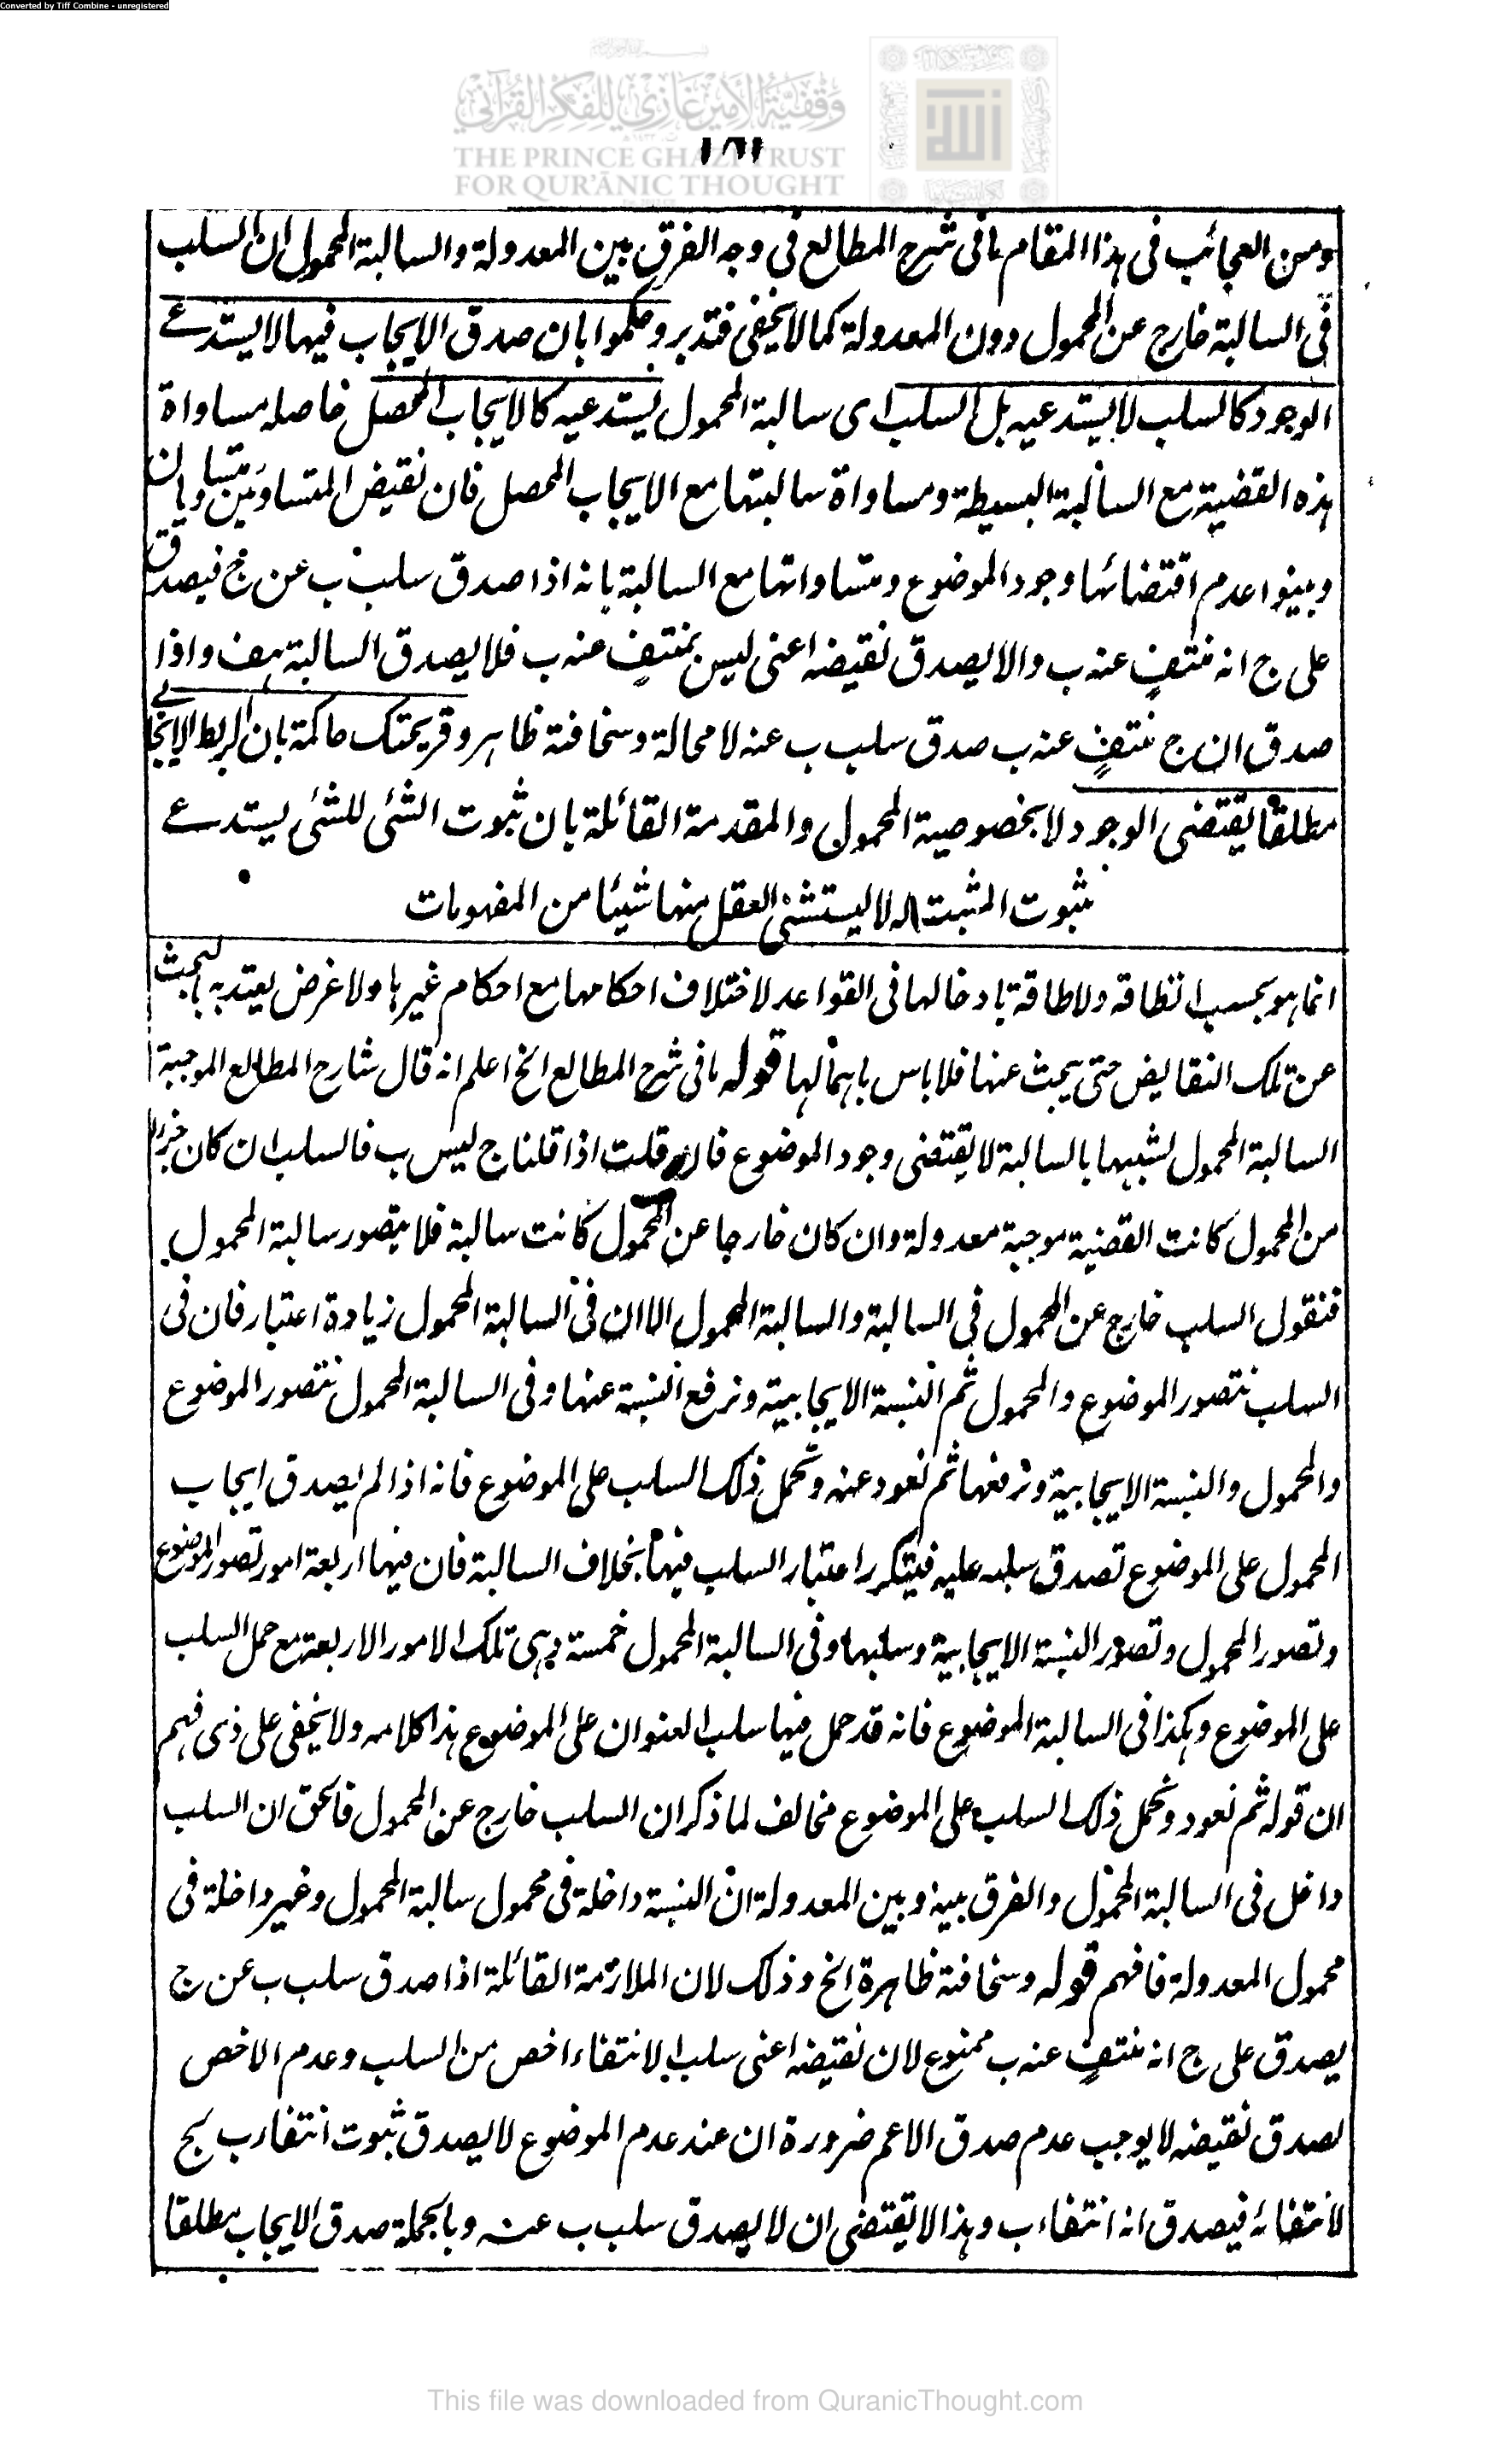 Converted by Tiff Combine - unregistered
وقفية الأمير غازي للفكر القرآني
THE PRINCE GHAZI TRUST
FOR QUR'ĀNIC THOUGHT
ومن العجائب فى هذا المقام ما فى شرح المطالع فى وجه الفرق بين المعدولة والسالبة المحمول ان السلب
فى السالبة خارج عن المحمول دون المعدولة كما لا يخفى فتدبر وحكموا بان صدق الايجاب فيها لا يستدعے
الوجود كالسلب لا يستدعيه بل السلب اى سالبة المحمول يستدعيه كالايجاب المحصل حاصله مساواة
هذه القضية مع السالبة البسيطة ومساواة سالبتها مع الايجاب المحصل فان نقيض المتساويين متساويان
وبينوا عدم اقتضائها وجود الموضوع ومتساواتها مع السالبة بانه اذا صدق سلب ب عن ج فيصدق
على ج انه منتفٍ عنه ب والا يصدق نقيضه اعنى ليس بمنتفٍ عنه ب فلا يصدق السالبة هف واذا
صدق ان ج منتفٍ عنه ب صدق سلب ب عنه لا محالة وسخافته ظاهر وقريحتك حاكمة بان الربط الايجابے
مطلقا يقتضى الوجود لا بخصوصية المحمول والمقدمة القائلة بان ثبوت الشئ للشئ يستدعے
ثبوت المثبت له لا يستثنى العقل منها شيئا من المفهومات
انما هو بحسب الطاقه ولا طاقة بادخالها فى القواعد لاختلاف احكامها مع احكام غيرها ولا غرض يعتد به بالبحث
عن تلك النقايض حتى يبحث عنها فلا باس باهمالها قوله ما فى شرح المطالع الخ اعلم انه قال شارح المطالع الموجبة
السالبة المحمول لشبهها بالسالبة لا يقتضى وجود الموضوع فان قلت اذا قلنا ج ليس ب فالسلب ان كان جزءا
من المحمول كانت القضية موجبة معدولة وان كان خارجا عن المحمول كانت سالبة فلا يتصور سالبة المحمول
فنقول السلب خارج عن المحمول فى السالبة والسالبة المحمول الا ان فى السالبة المحمول زيادة اعتبار فان فى
السلب نتصور الموضوع والمحمول ثم النسبة الايجابية ونرفع النسبة عنها وفى السالبة المحمول نتصور الموضوع
والمحمول والنسبة الايجابية ونرفعها ثم نعود عنه ونحمل ذلك السلب على الموضوع فانه اذا لم يصدق ايجاب
المحمول على الموضوع تصدق سلبه عليه فيتكرر اعتبار السلب فيها بخلاف السالبة فان فيها اربعة امور تصور الموضوع
وتصور المحمول وتصور النسبة الايجابية وسلبها وفى السالبة المحمول خمسة وهى تلك الامور الاربعة مع حمل السلب
على الموضوع وهكذا فى السالبة الموضوع فانه قد حمل فيها سلب العنوان على الموضوع هذا كلامه ولا يخفى على ذى فهم
ان قوله ثم نعود ونحمل ذلك السلب على الموضوع مخالف لما ذكر ان السلب خارج عن المحمول فالحق ان السلب
داخل فى السالبة المحمول والفرق بينه وبين المعدولة ان النسبة داخلة فى محمول سالبة المحمول وغير داخلة فى
محمول المعدولة فافهم قوله وسخافته ظاهرة الخ وذلك لان الملازمة القائلة اذا صدق سلب ب عن ج
يصدق على ج انه منتفٍ عنه ب ممنوع لان نقيضه اعنى سلب الانتفاء اخص من السلب وعدم الاخص
لصدق نقيضه لا يوجب عدم صدق الاعم ضرورة ان عند عدم الموضوع لا يصدق ثبوت انتفاء ب لج
لانتفائه فيصدق انه انتفاء ب وهذا لا يقتضى ان لا يصدق سلب ب عنه وبالجملة صدق الايجاب مطلقا
This file was downloaded from QuranicThought.com